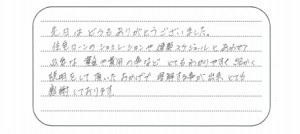 先日はどうもありがとうございました。
住宅ローンのシュミレーションや建築スケジュールとあわせて
必要な資金や費用の事など とてもわかりやすく 細かく
説明をして頂いたおかげで 理解する事が出来 とても
感謝しております。